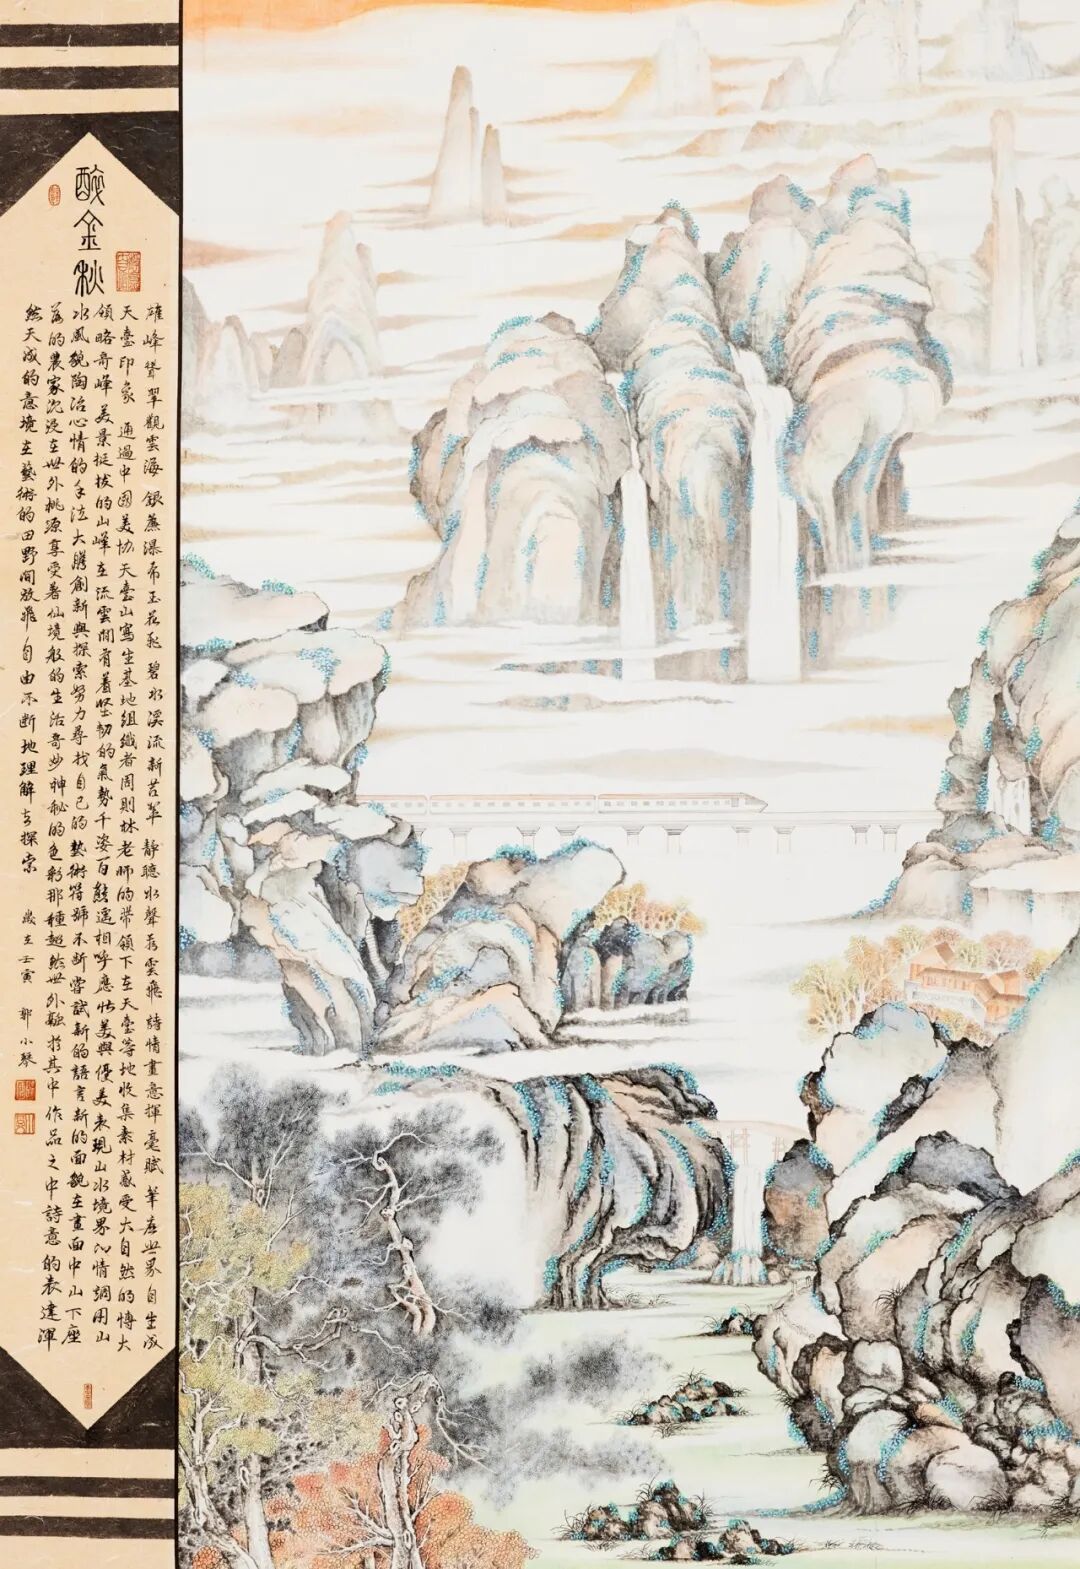 醉金秋
雄峰聳翠觀雲海 銀簾瀑布玉花飛 碧水溪流新苔翠 靜聽水聲落雲飛 詩情畫意揮毫賦 筆底世界自生成
天臺印象 通過中國美协天臺山寫生基地組織者周則林老師的带領下在天臺等地收集素材感受大自然的博大
領略奇峰美景挺拔的山峰在流雲間有着堅韌的氣勢千姿百態遥相呼應壯美與優美表現山水境界和情調用山
水風貌陶冶心情的手法大膽創新與探索努力尋找自己的藝術符號不斷嘗試新的語言新的面貌在畫面中山下座
落的農家沉浸在世外桃源享受着仙境般的生活奇妙神秘的色彩那種超然世外融於其中作品之中詩意的表達渾
然天成的意境在藝術的田野間放飛自由不断地理解与探索 歲在壬寅 郭小琴